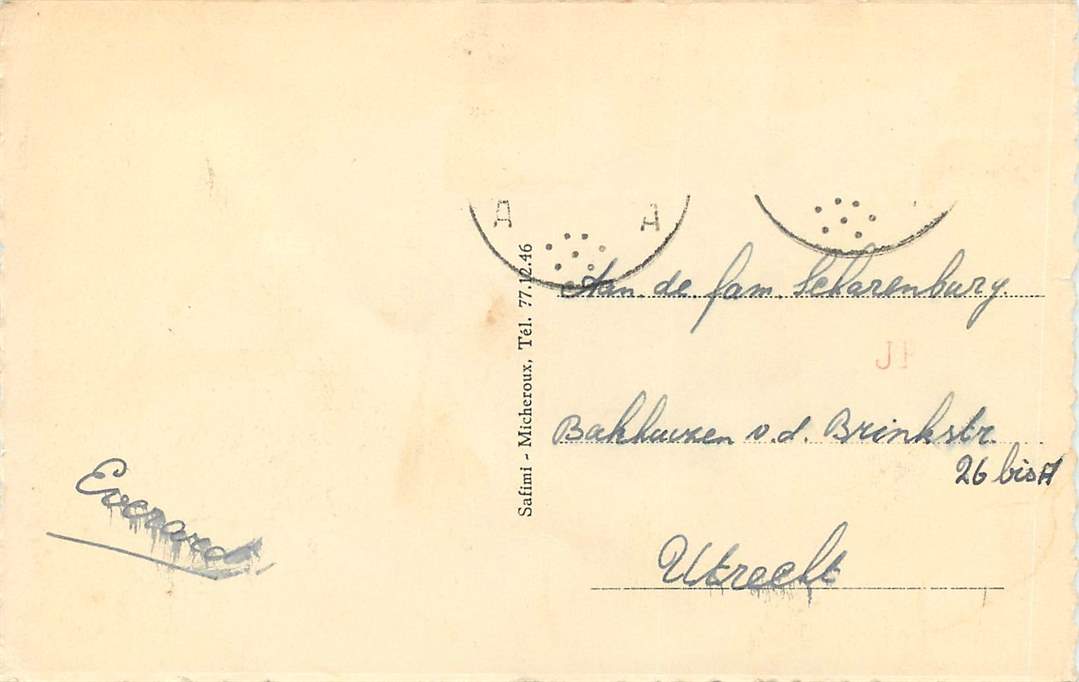 A A
Safimi - Micheroux, Tél. 77.12.46
Aan de fam. Scharenburg
Bakhuizen v.d. Brinkstr.
26 bis A
Utrecht
Everard